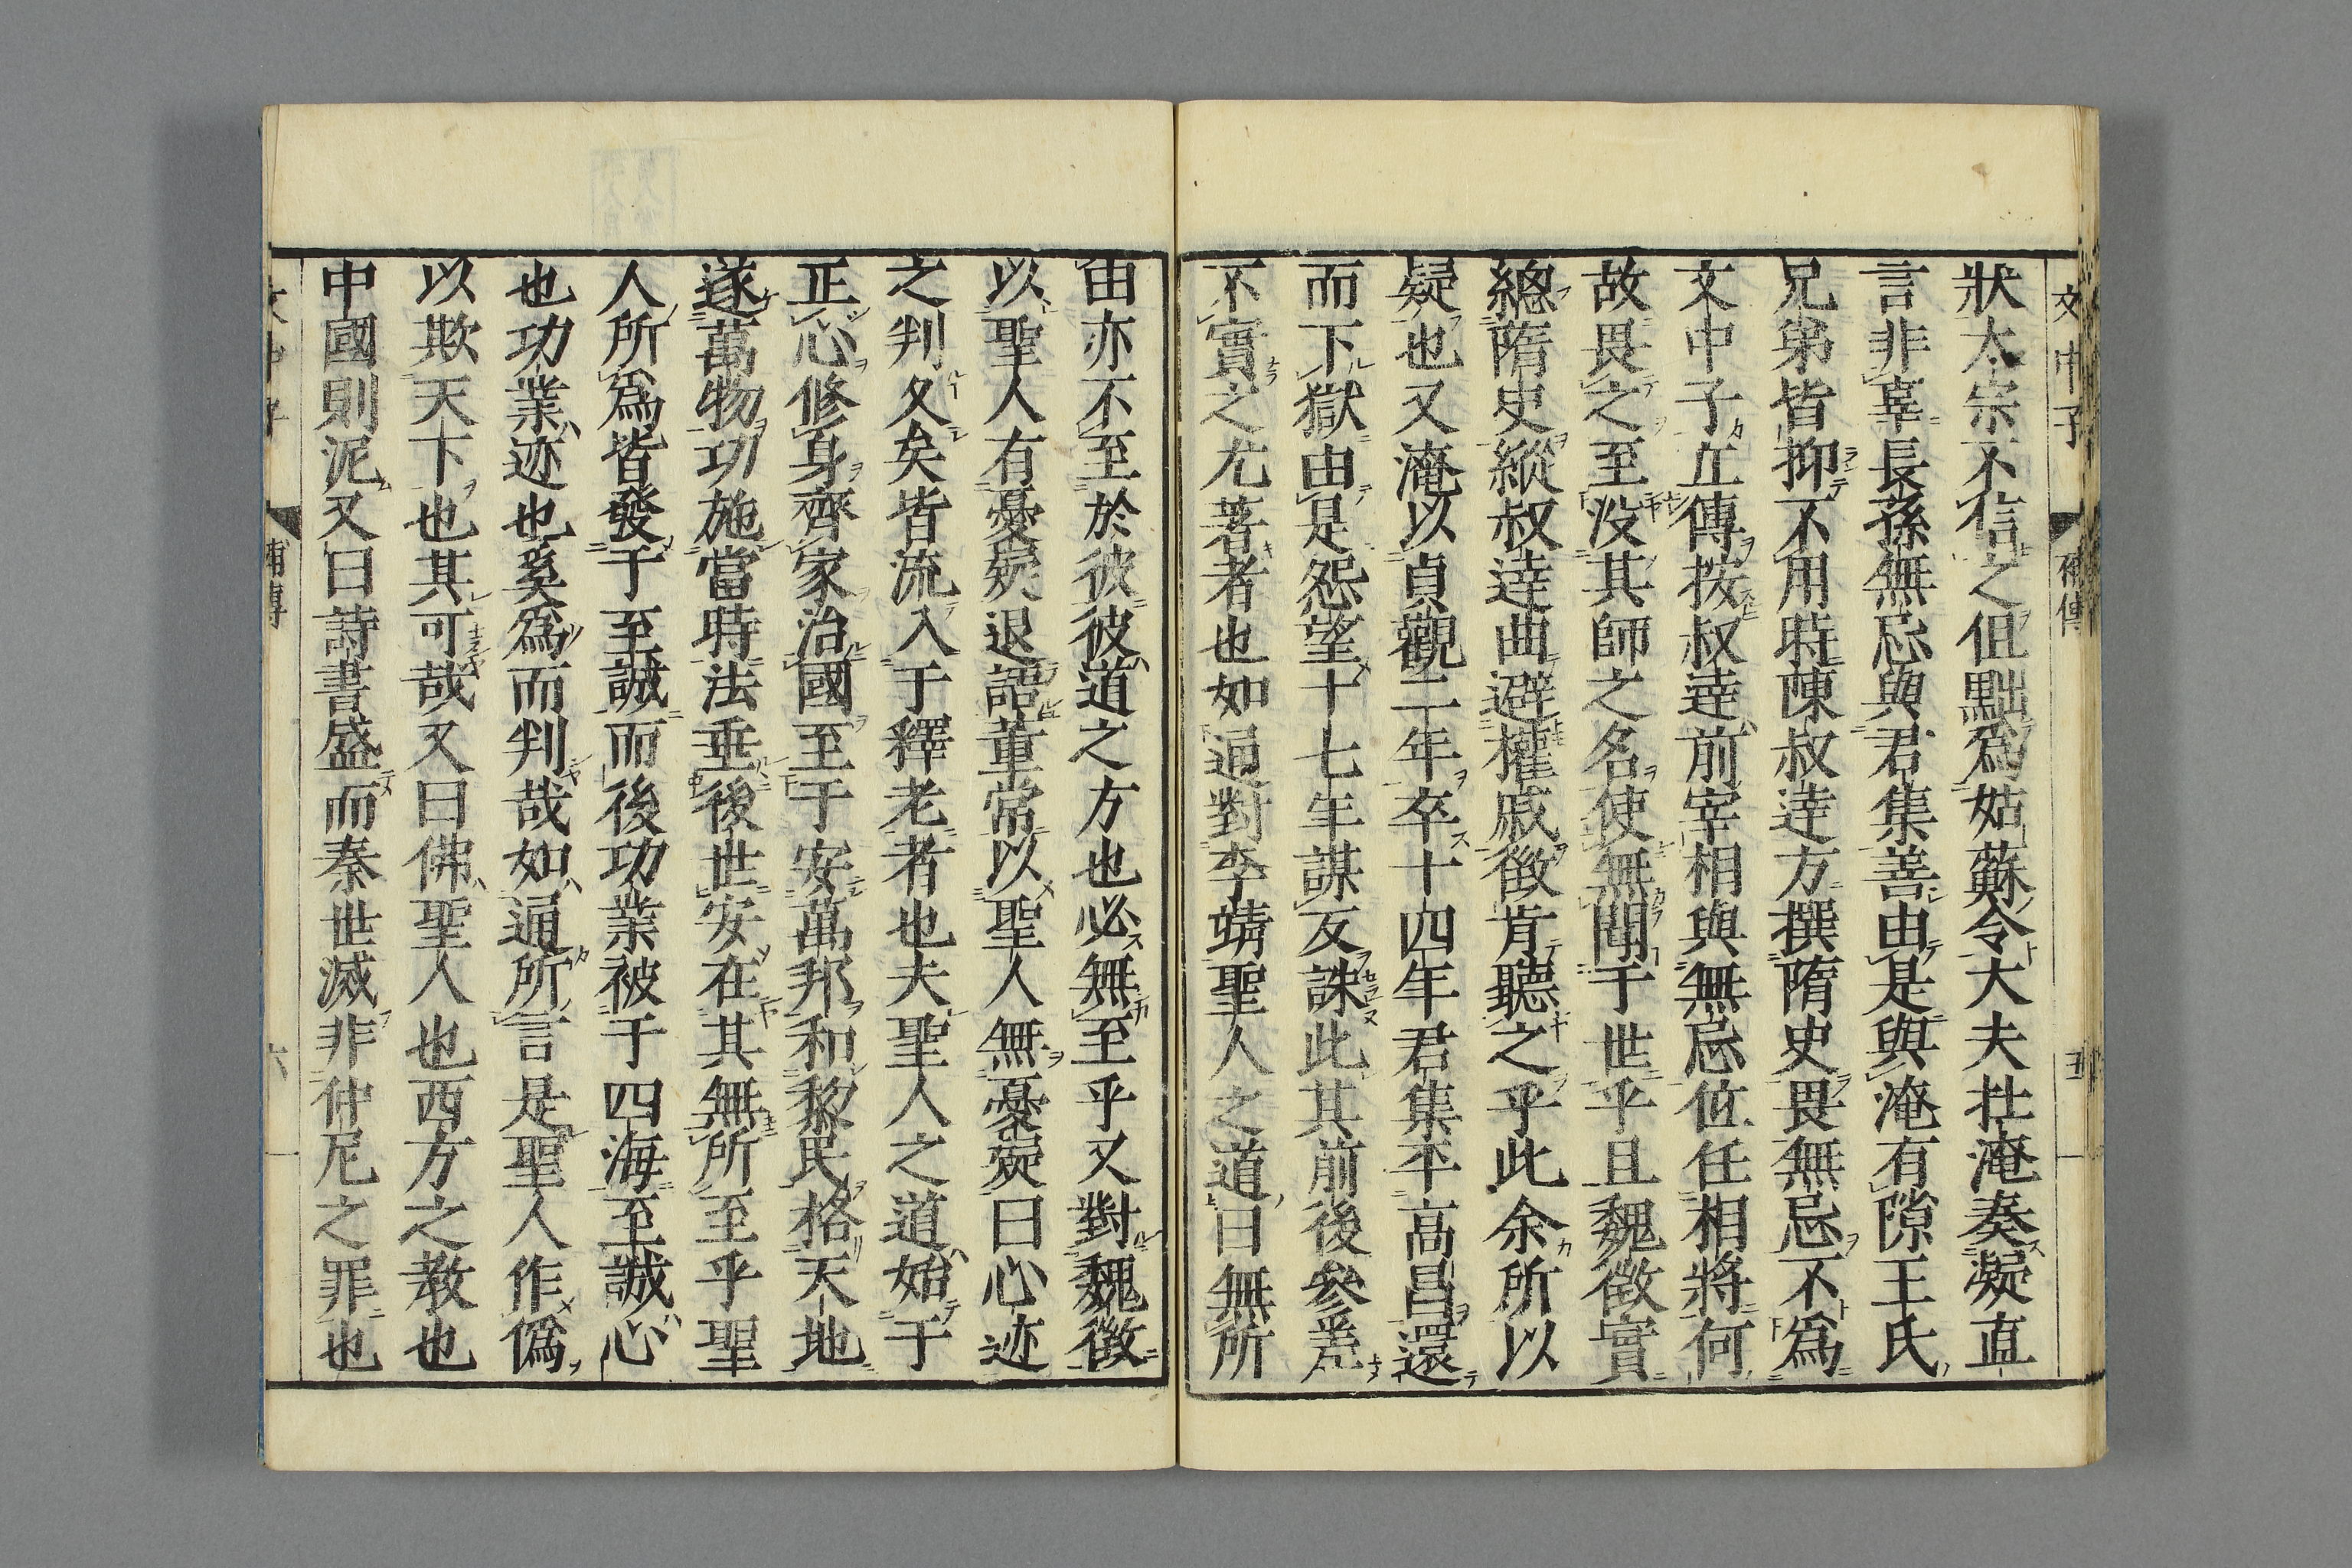 文中子 補傳 五
狀太宗不信之但黜爲姑蘇令大夫杜淹奏凝直
言非辜長孫無忌與君集善由是與淹有隙王氏
兄弟皆抑不用時陳叔達方撰隋史畏無忌不爲
文中子立傳按叔達前宰相與無忌位任相將何
故畏之至没其師之名使無聞于世乎且魏徵實
總隋史縱叔達曲避權戚徵肯聽之乎此余所以
疑也又淹以貞觀二年卒十四年君集平高昌還
而下獄由是怨望十七年謀反誅此其前後參差
不實之尤著者也如通對李靖聖人之道曰無所
由亦不至於彼彼道之方也必無至乎又對魏徵
以聖人有憂疑退語董常以聖人無憂疑曰心迹
之判久矣皆流入于釋老者也夫聖人之道始于
正心修身齊家治國至于安萬邦和黎民格天地
遂萬物功施當時法垂後世安在其無所至乎聖
人所爲皆發于至誠而後功業被于四海至誠心
也功業迹也奚爲而判哉如通所言是聖人作僞
以欺天下也其可哉又曰佛聖人也西方之教也
中國則泥又曰詩書盛而秦世滅非仲尼之罪也
文中子 補傳 六